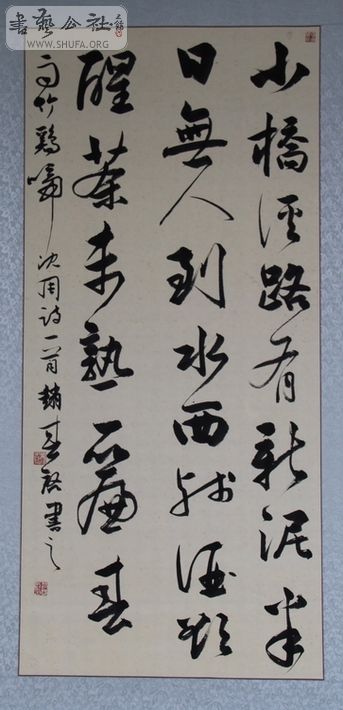 書藝公社
WWW.SHUFA.ORG
小橋溪路有新泥半
日無人到水西殘酒欲
醒茶未熟一簾春
雨竹鷄啼 沈周詩一首 書之